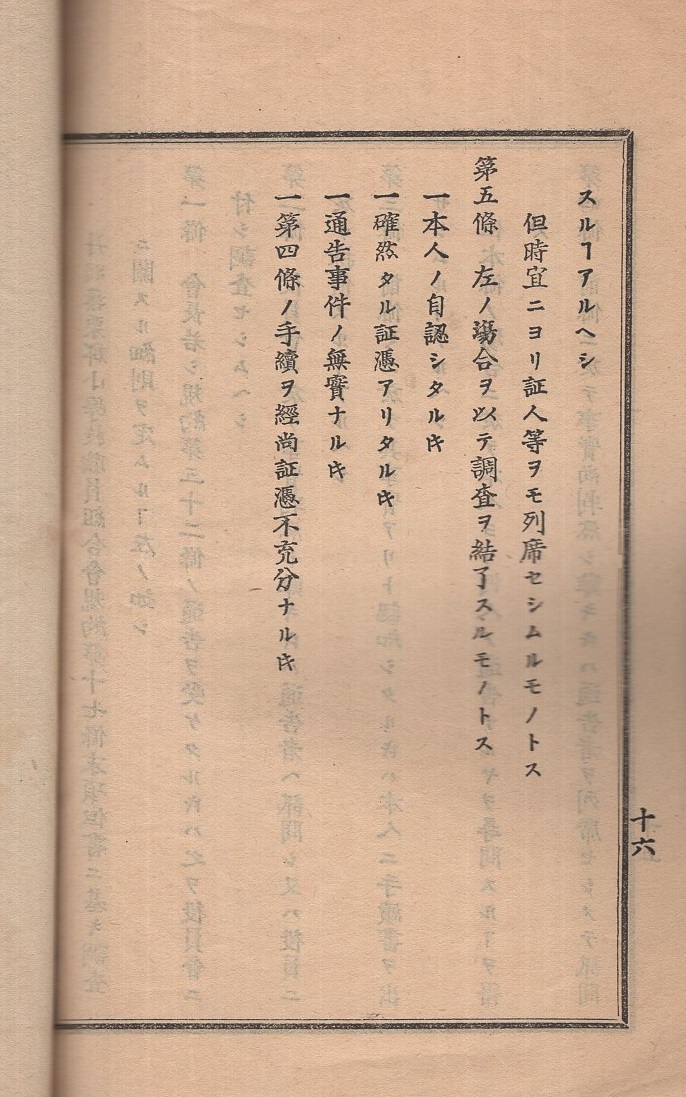 スルヿアルヘシ
但時宜ニヨリ証人等ヲモ列席セシムルモノトス
第五條 左ノ塲合ヲ以テ調査ヲ結了スルモノトス
一本人ノ自認シタルキ
一確然タル証憑アリタルキ
一通告事件ノ無實ナルキ
一第四條ノ手續ヲ經尚証憑不充分ナルキ
十六